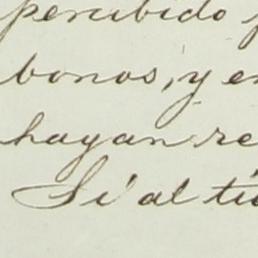 percibido
bonos, y en
hayan re
Si al ti